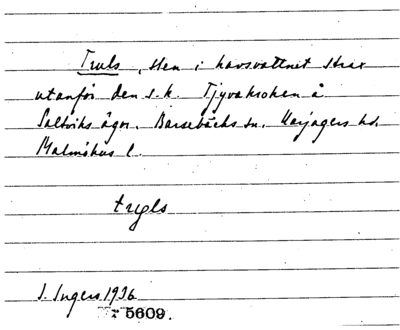 Truls, sten i havsvattnet strax
utanför den s.k. Tjyvakroken å
Saltviks ägor. Barsebäcks sn. Harjagers hd.
Malmöhus l.
trɥls
I. Ingers 1936
Nr 5609.